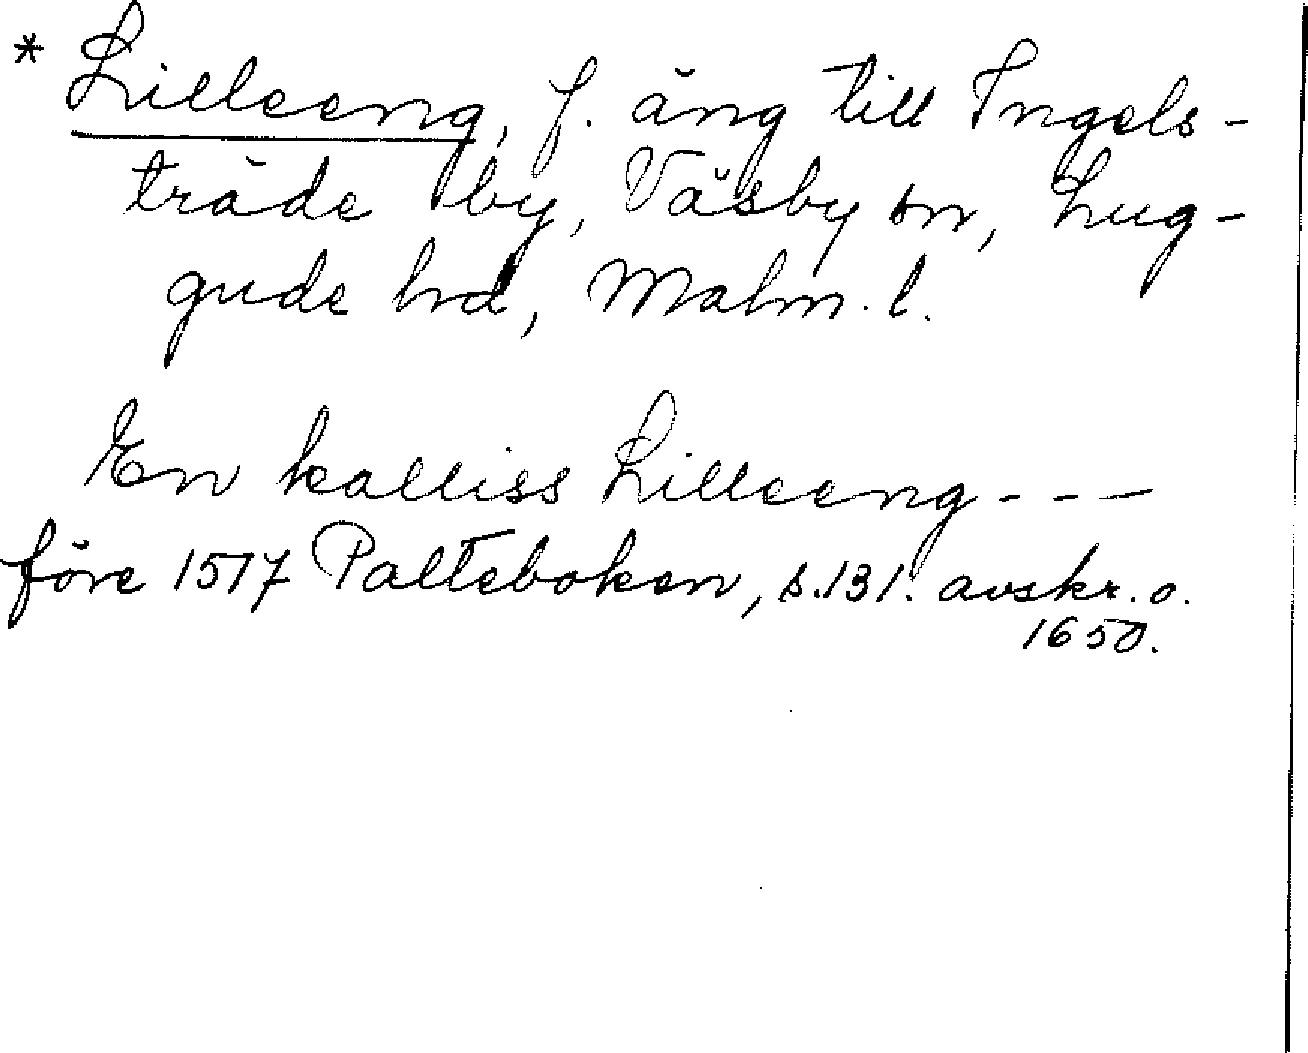 * Lilleeng, f. äng till Ingels-
träde by, Väsby sn, Lug-
gude hd, Malm. l.
En kalliss Lilleeng - - -
före 1517 Palteboken, s. 131. avskr. o.
1650.